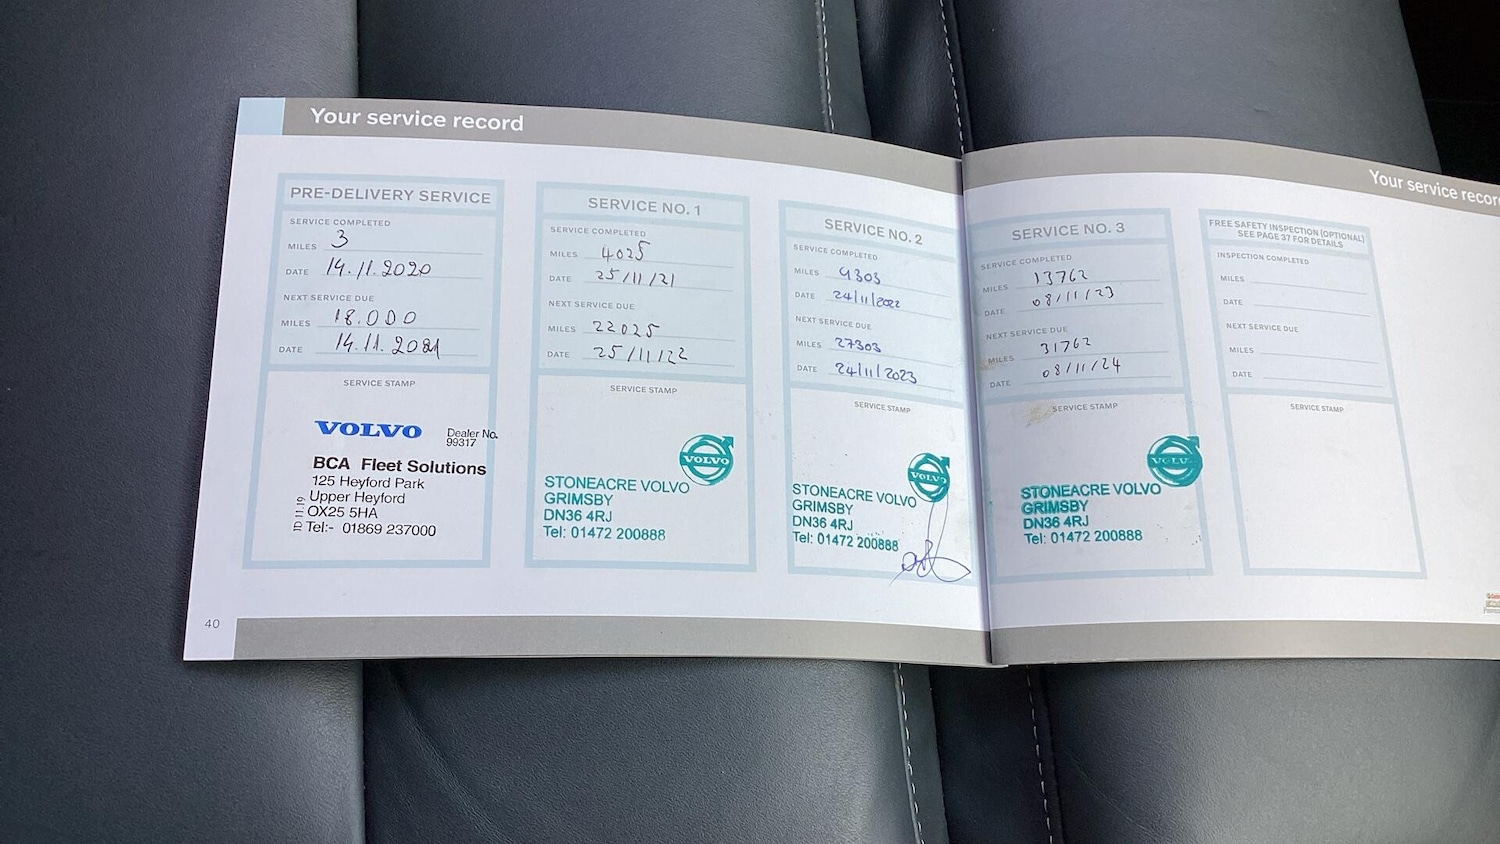 Your service record
PRE-DELIVERY SERVICE
SERVICE COMPLETED
MILES 3
DATE 14.11.2020
NEXT SERVICE DUE
MILES 18.000
DATE 14.11.2021
SERVICE STAMP
VOLVO
Dealer No.
99317
BCA Fleet Solutions
125 Heyford Park
Upper Heyford
OX25 5HA
Tel:- 01869 237000
40
SERVICE NO. 1
SERVICE COMPLETED
MILES 4025
DATE 25/11/21
NEXT SERVICE DUE
MILES 22025
DATE 25/11/22
SERVICE STAMP
VOLVO
STONEACRE VOLVO
GRIMSBY
DN36 4RJ
Tel: 01472 200888
SERVICE NO. 2
SERVICE COMPLETED
MILES 9303
DATE 24/11/2022
NEXT SERVICE DUE
MILES 27303
DATE 24/11/2023
SERVICE STAMP
VOLVO
STONEACRE VOLVO
GRIMSBY
DN36 4RJ
Tel: 01472 200888
Your service recor
SERVICE NO. 3
SERVICE COMPLETED
MILES 13762
DATE 08/11/23
NEXT SERVICE DUE
MILES 31762
DATE 08/11/24
SERVICE STAMP
VOLVO
STONEACRE VOLVO
GRIMSBY
DN36 4RJ
Tel: 01472 200888
FREE SAFETY INSPECTION (OPTIONAL)
SEE PAGE 37 FOR DETAILS
INSPECTION COMPLETED
MILES
DATE
NEXT SERVICE DUE
MILES
DATE
SERVICE STAMP